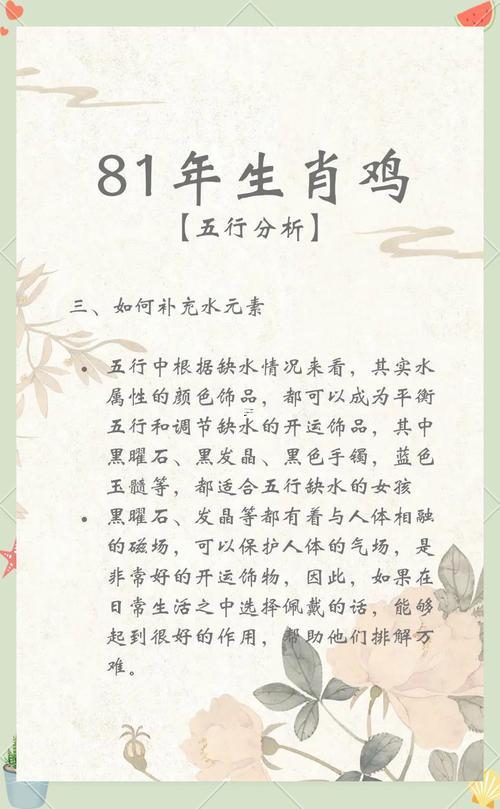 81年生肖鸡
【五行分析】
三、如何补充水元素
• 五行中根据缺水情况来看，其实水
属性的颜色饰品，都可以成为平衡
五行和调节缺水的开运饰品，其中
黑曜石、黑发晶、黑色手镯，蓝色
玉髓等，都适合五行缺水的女孩
• 黑曜石、发晶等都有着与人体相融
的磁场，可以保护人体的气场，是
非常好的开运饰物，因此，如果在
日常生活之中选择佩戴的话，能够
起到很好的作用，帮助他们排解万
难。